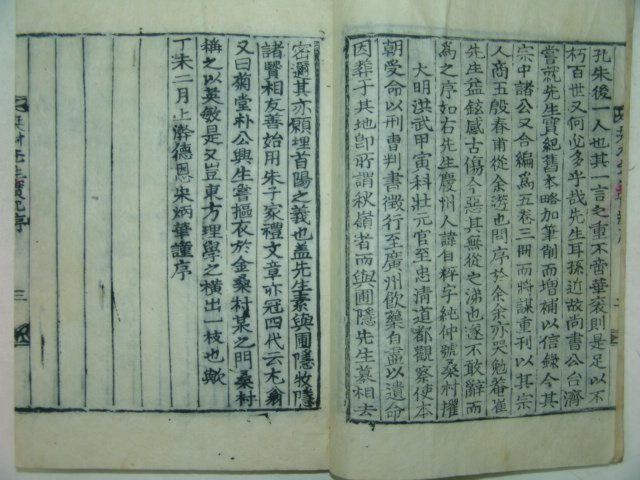 孔朱後一人也其一言之重不啻華袞則是足以不
朽百世又何必多乎哉先生耳孫近故尚書公台濟
嘗就先生實紀舊本略加筆削而增補以信錄今其
宗中諸公又合編爲五卷三冊而將謀重刊以其宗
人商五殷春甫從余遊也問序於余余亦哭勉菴崔
先生益鉉感古傷今惡其無從之涕也遂不敢辭而
為之序如右先生慶州人諱自粹字純仲號桑村擢
大明洪武甲寅科壯元官至忠清道都觀察使本
朝受命以刑曹判書徵行至廣州飮藥有盡以遺命
因葬于其地卽所謂秋嶺者而與圃隱先生墓相去
密邇其亦願埋首陽之義也盖先生素與圃隱牧隱
諸賢相友善始用朱子家禮文章亦冠四代云尤翁
又曰菊堂朴公興生嘗摳衣於金桑村某之門桑村
稱之以英敏是又豈東方理學之橫出一枝也歟
丁未二月上澣德恩宋炳華謹序
桑村先生實紀序
三